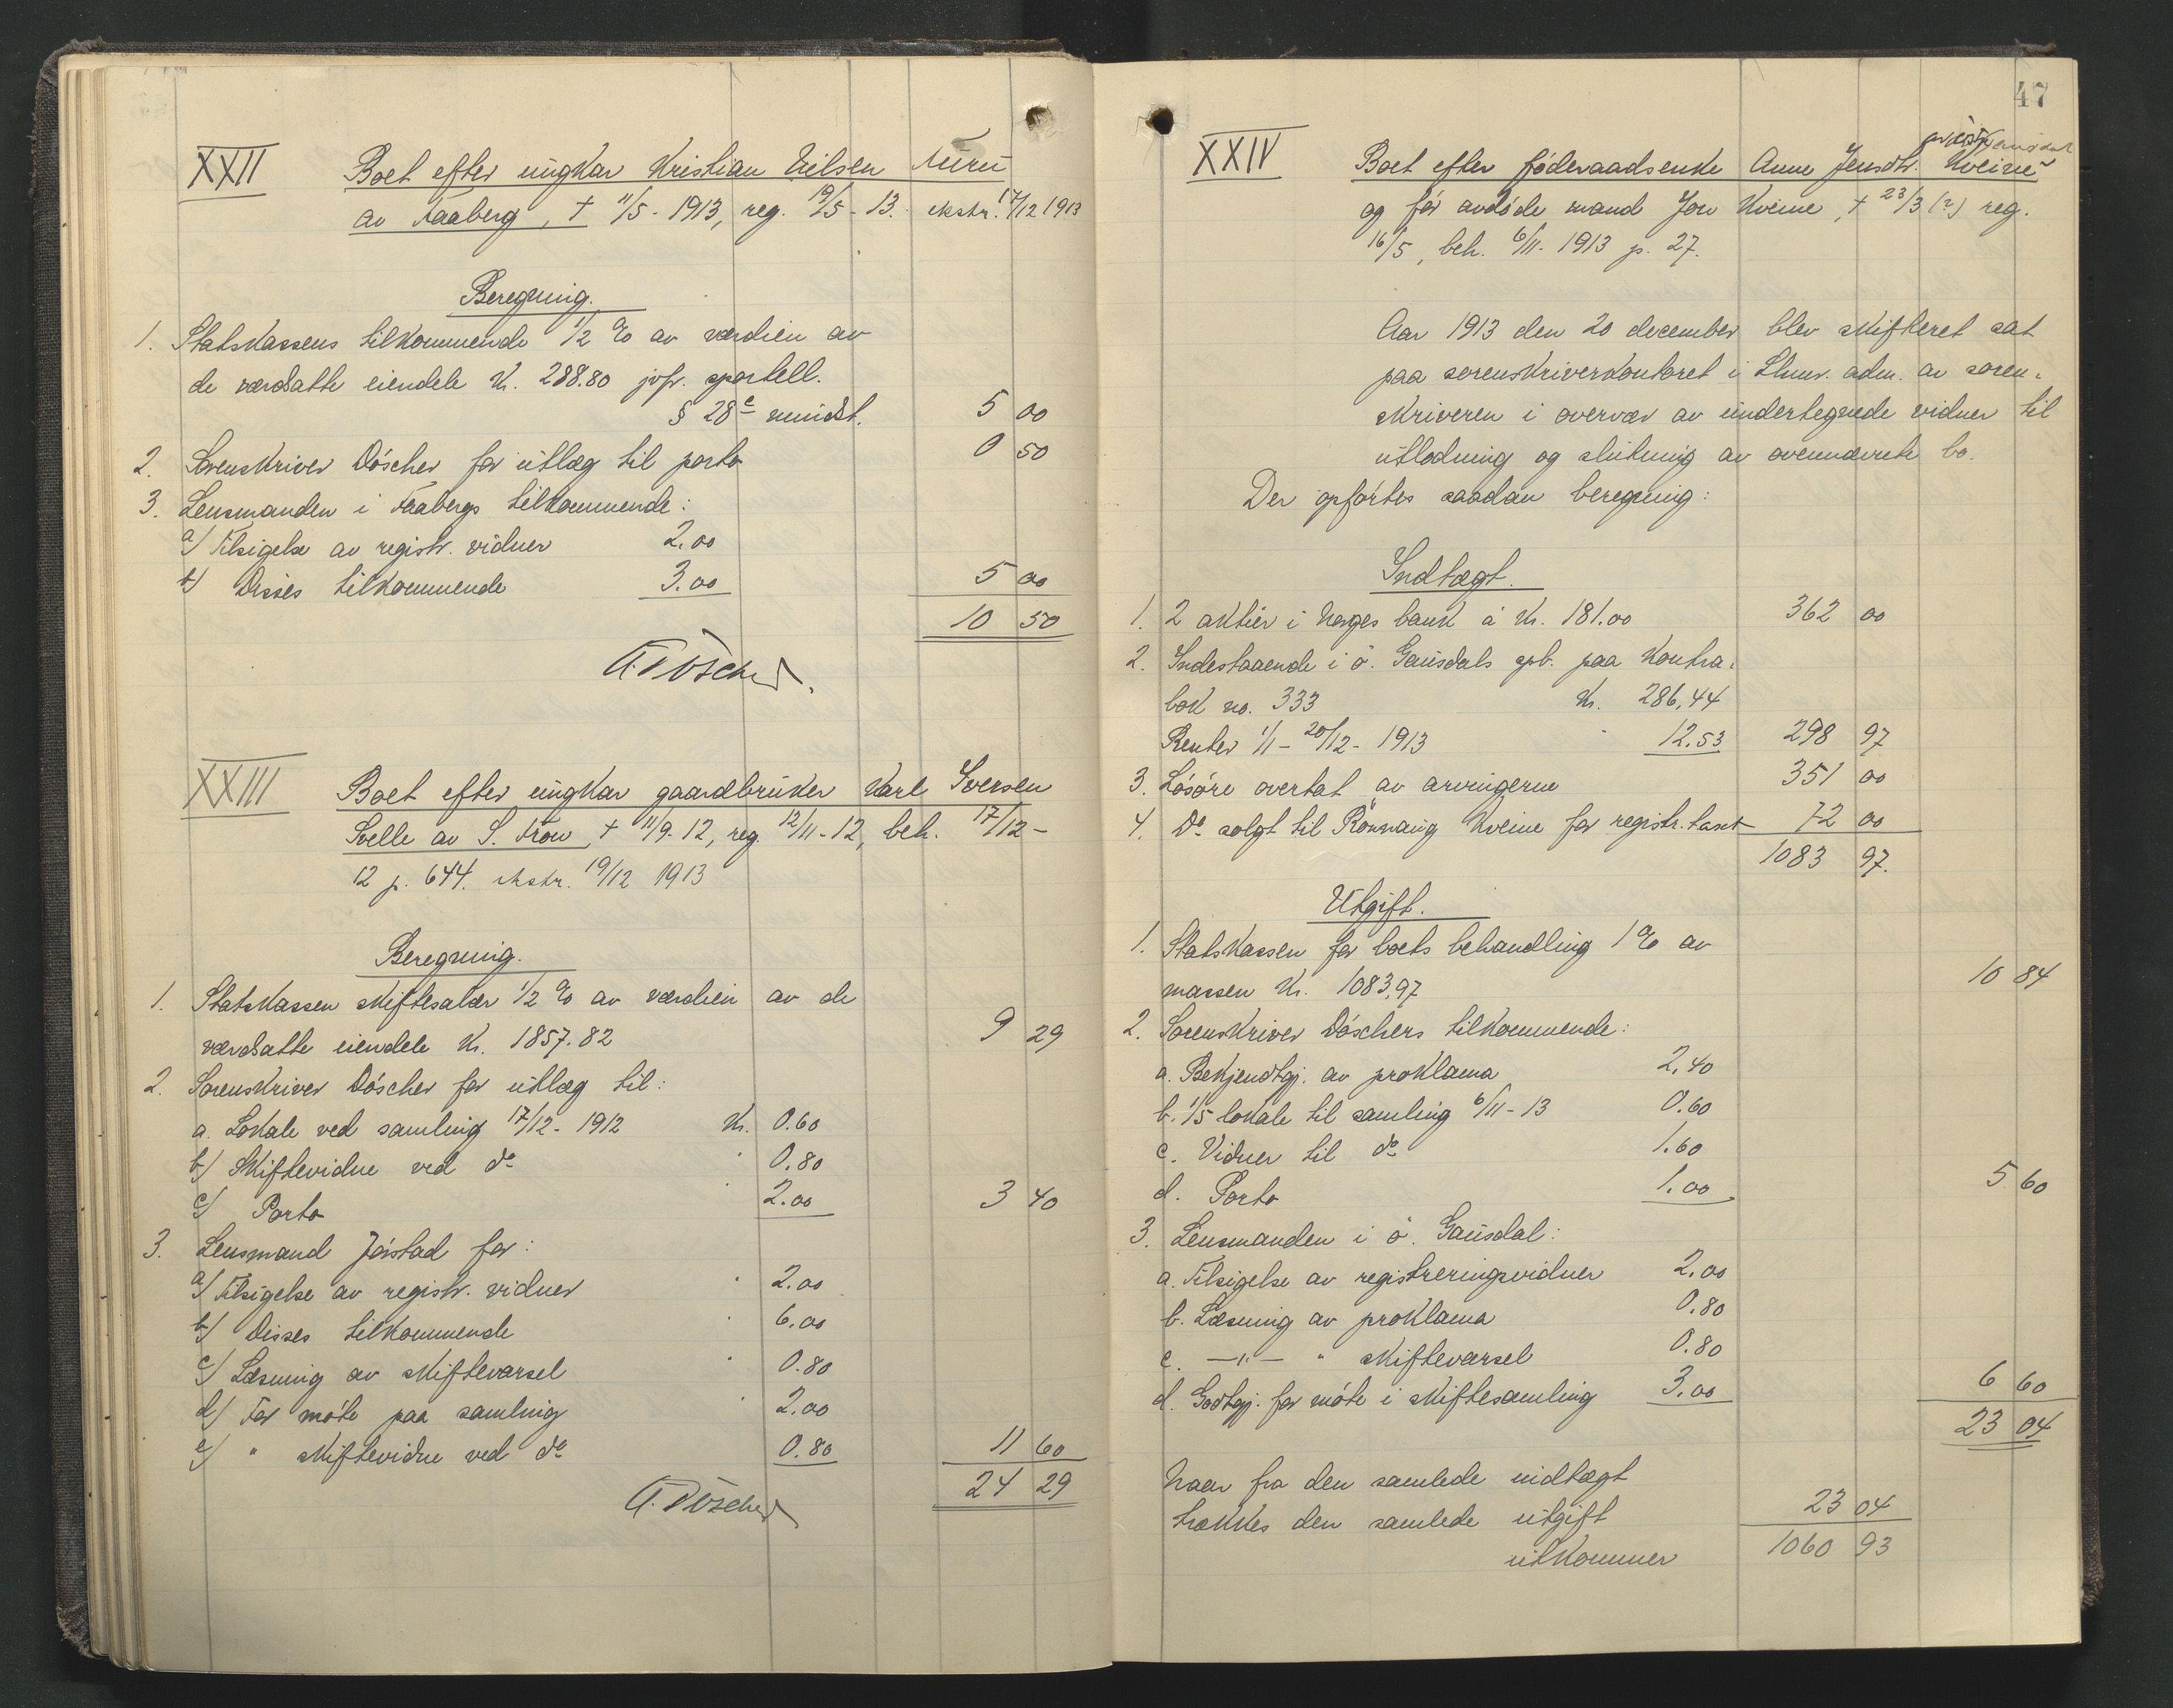 XXII
Boet efter ungkar Kristian Nilsen Auru
av Faaberg, † 11/5 - 1913, reg. 19/5 - 13. ekstr. 17/12 1913
Beregning.
1. Statskassens tilkommende 1/2 % av værdien av
de værdsatte eiendele kr. 288.80 jvfr. sportell.
§ 28 c mindst. 5 00
2. Sorenskriver Döscher for utlæg til porto 0 50
3. Lensmanden i Faabergs tilkommende:
a) Tilsigelse av registr. vidner 2.00
b) Disses tilkommende 3.00 5 00
10 50
A. Döscher.
XXIII
Boet efter ungkar gaardbruker Karl Iversen
Selle av S. Fron, † 11/9 - 12, reg. 12/11 - 12, beh. 17/12 -
12 p. 644. ekstr. 19/12 1913
Beregning.
1. Statskassen skiftesalær 1/2 % av værdien av de
værdsatte eiendele kr. 1857.82 9 29
2. Sorenskriver Döscher for utlæg til:
a. Lokale ved samling 17/12 - 1912 kr. 0.60
b) Skiftevidne ved do " 0.80
c) Porto " 2.00 3 40
3. Lensmand Jörstad for:
a) Tilsigelse av registr. vidner " 2.00
b) Disses tilkommende " 6.00
c) Læsning av skiftevarsel " 0.80
d) For möte paa samling " 2.00
e) " skiftevidne ved do 0.80 11 60
24 29
A. Döscher
47
XXIV
av östre Gausdal
Boet efter föderaadsenke Anne Jensdtr. Kveine
og för avdöde mand Jon Kveine, † 23/3 (?) reg.
16/5, beh. 6/11 - 1913 p. 27.
Aar 1913 den 20 december blev skifteret sat
paa sorenskriverkontoret i Lhmr. adm. av soren-
skriveren i overvær av undertegnede vidner til
utlodning og slutning av ovennævnte bo.
Der opförtes saadan beregning:
Indtægt.
1. 2 aktier i Norges bank á kr. 181.00 362 00
2. Indestaaende i ö. Gausdals spb. paa kontra-
bok no. 333 kr. 286,44
Renter 1/1 - 20/12 - 1913 " 12.53 298 97
3. Lösöre overtat av arvingerne 351 00
4. Do solgt til Rönnaug Kveine for registr. takst 72 00
1083 97.
Utgift.
1. Statskassen for boets behandling 1 % av
massen kr. 1083,97 10 84
2. Sorenskriver Döschers tilkommende:
a. Bekjendtgj. av proklama 2,40
b. 1/5 lokale til samling 6/11 - 13 0.60
c. Vidner til do 1.60
d. Porto 1.00 5 60
3. Lensmanden i ö. Gausdal:
a. Tilsigelse av registreringsvidner 2.00
b. Læsning av proklama 0.80
c. —"— " skiftevarsel 0.80
d. Godtgj. for möte i skiftesamling 3.00 6 60
23 04
Naar fra den samlede indtægt
trækkes den samlede utgift 23 04
utkommer 1060 93